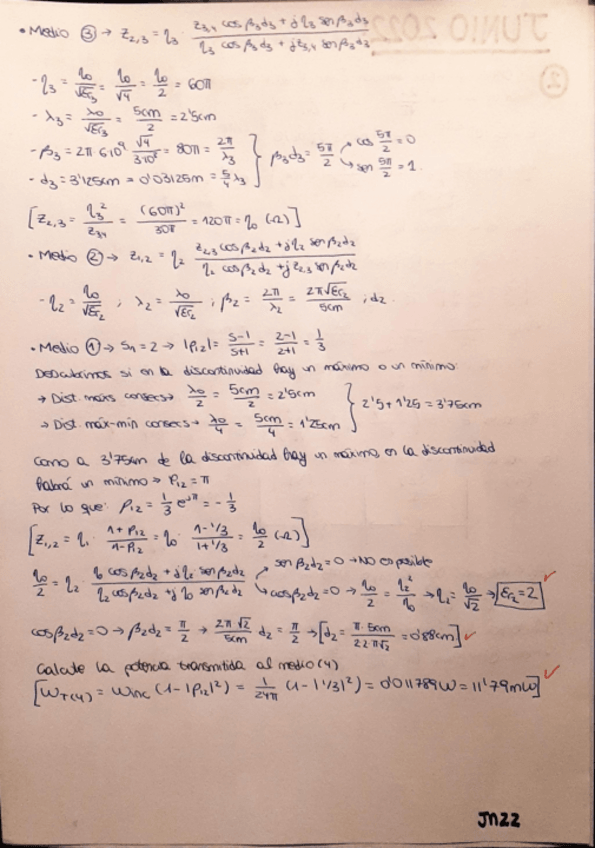 • Medio ③ → Z₂,₃ = η₃ · (Z₃,₄ cos β₃d₃ + jη₃ sen β₃d₃) / (η₃ cos β₃d₃ + jZ₃,₄ sen β₃d₃)
- η₃ = η₀/√εr₃ = η₀/√4 = η₀/2 = 60π
- λ₃ = λ₀/√εr₃ = 5cm/2 = 2'5cm
- β₃ = 2π·6·10⁹ √4/3·10⁸ = 80π = 2π/λ₃ } β₃d₃ = 5π/2 → cos 5π/2 = 0 → sen 5π/2 = 1.
- d₃ = 3'125cm = 0'03125m = 5/4 λ₃
[Z₂,₃ = η₃²/Z₃₄ = (60π)²/30π = 120π = η₀ (Ω)]
• Medio ② → Z₁,₂ = η₂ (Z₂,₃ cos β₂d₂ + jη₂ sen β₂d₂) / (η₂ cos β₂d₂ + jZ₂,₃ sen β₂d₂)
- η₂ = η₀/√εr₂ ; λ₂ = λ₀/√εr₂ ; β₂ = 2π/λ₂ = 2π√εr₂/5cm ; d₂.
• Medio ① → S₁ = 2 → |ρ₁₂| = S-1/S+1 = 2-1/2+1 = 1/3
Descubrimos si en la discontinuidad hay un máximo o un mínimo:
→ Dist. máxs consecs → λ₀/2 = 5cm/2 = 2'5cm } 2'5 + 1'25 = 3'75cm
→ Dist. máx-mín consecs → λ₀/4 = 5cm/4 = 1'25cm
Como a 3'75cm de la discontinuidad hay un máximo, en la discontinuidad
habrá un mínimo → φ₁₂ = π
Por lo que: ρ₁₂ = 1/3 e^jπ = - 1/3
[Z₁,₂ = η₁ · 1+ρ₁₂/1-ρ₁₂ = η₀ · 1-1/3/1+1/3 = η₀/2 (Ω)]
η₀/2 = η₂ · (η₀ cos β₂d₂ + jη₂ sen β₂d₂) / (η₂ cos β₂d₂ + jη₀ sen β₂d₂) → sen β₂d₂ = 0 → NO es posible
→ cos β₂d₂ = 0 → η₀/2 = η₂²/η₀ → η₂ = η₀/√2 → εr₂ = 2 ✓
cos β₂d₂ = 0 → β₂d₂ = π/2 → 2π√2/5cm d₂ = π/2 → [d₂ = π·5cm/2·2π√2 = 0'88cm] ✓
Calcule la potencia transmitida al medio (4)
[W_T(4) = W_inc (1-|ρ₁₂|²) = 1/24π (1-|1/3|²) = 0'011789W = 11'79mW] ✓
JN22
JUNIO 2022
②